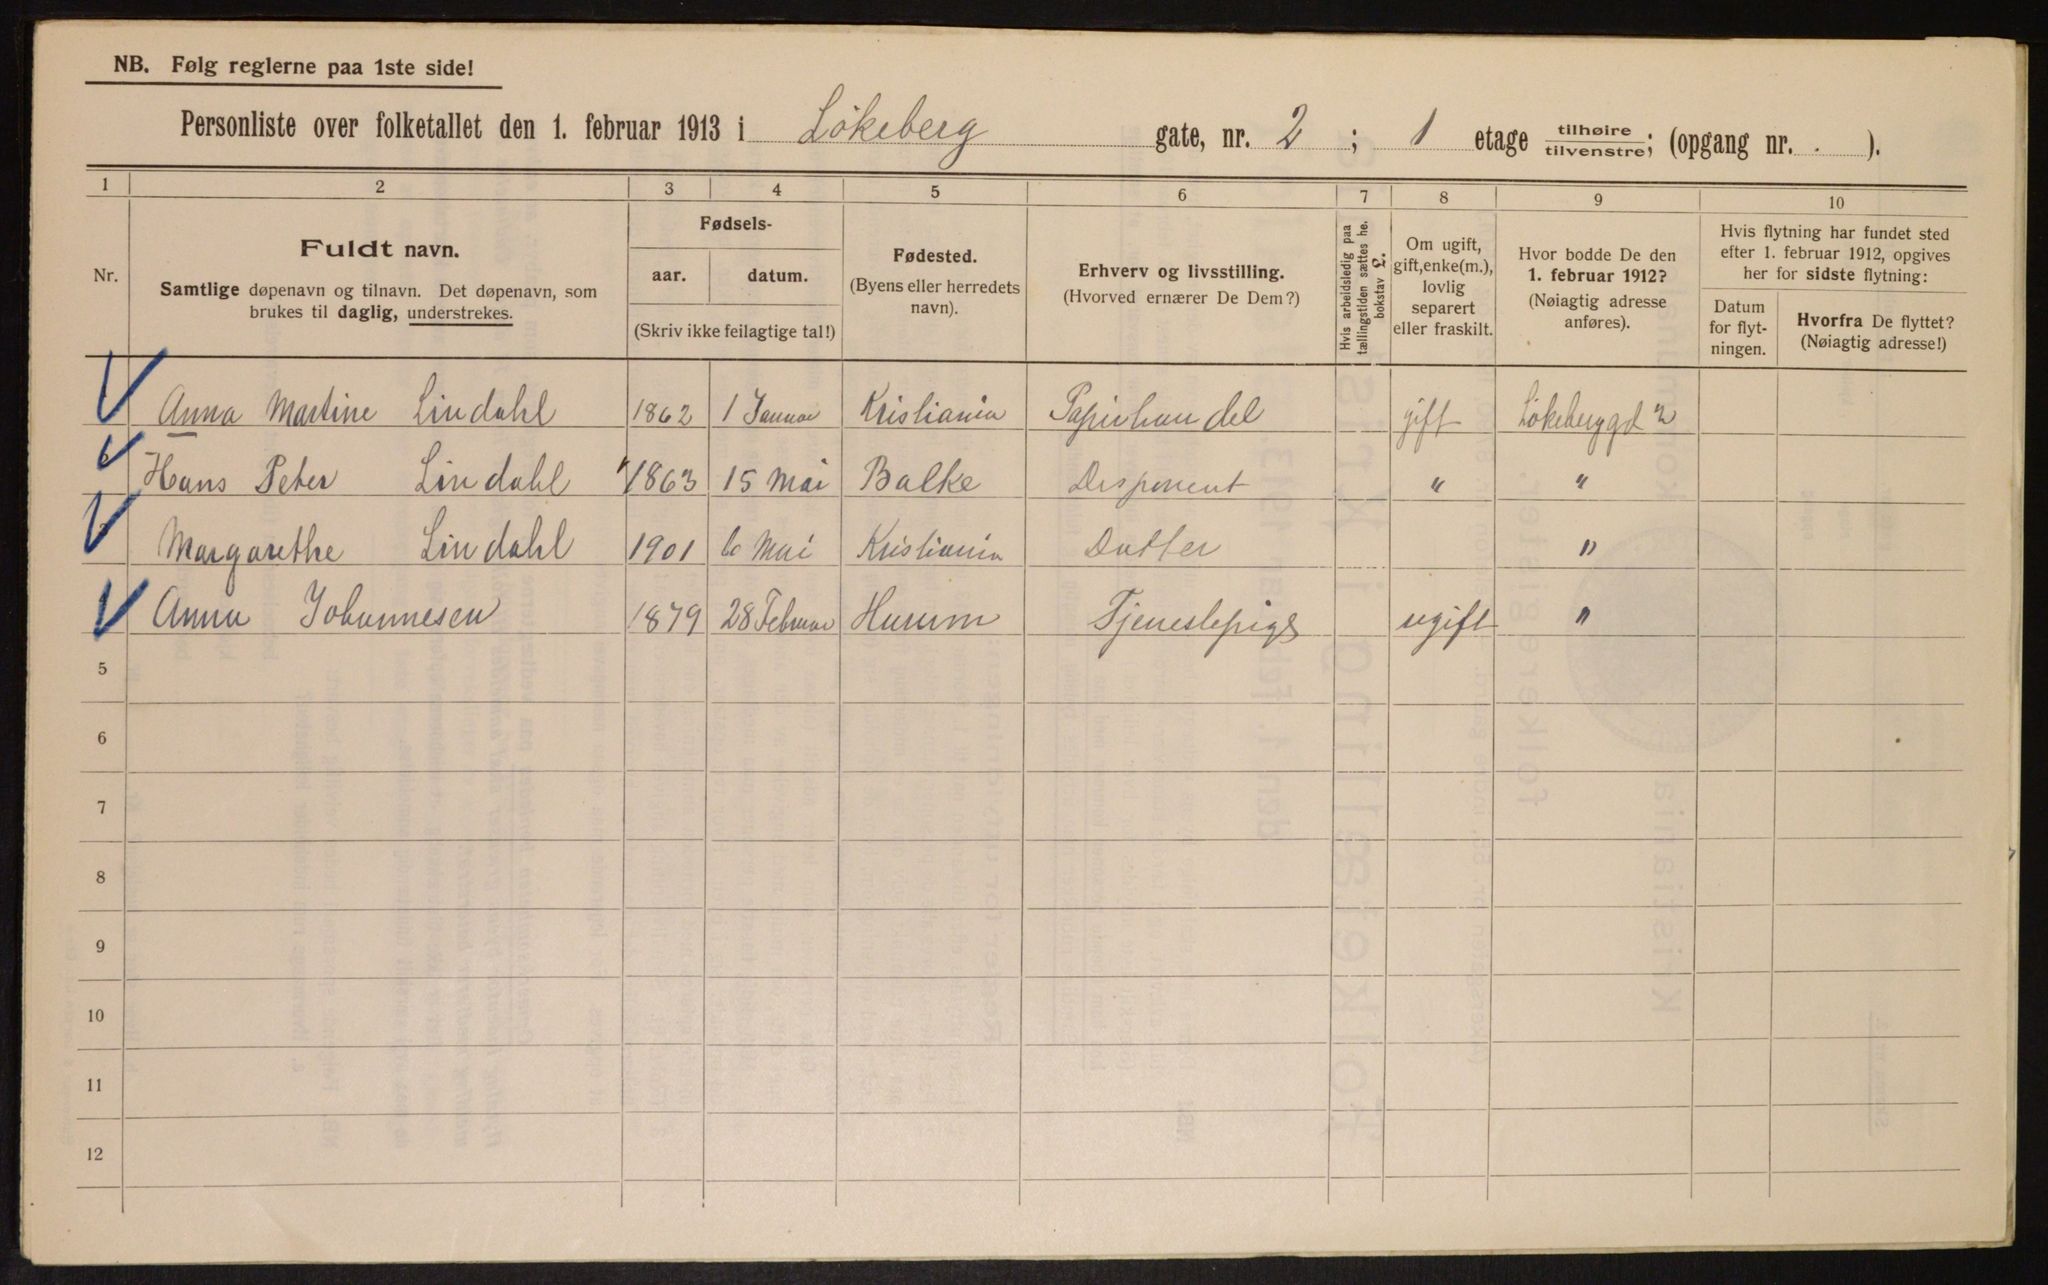 NB. Følg reglerne paa 1ste side!
Personliste over folketallet den 1. februar 1913 i Løkeberg gate, nr. 2 ; 1 etage tilhøire/tilvenstre; (opgang nr. . ).
1 2 3 4 5 6 7 8 9 10
Nr.
Fuldt navn.
Samtlige døpenavn og tilnavn. Det døpenavn, som
brukes til daglig, understrekes.
Fødsels-
aar. datum.
(Skriv ikke feilagtige tal!)
Fødested.
(Byens eller herredets
navn).
Erhverv og livsstilling.
(Hvorved ernærer De Dem?)
Hvis arbeidsledig paa
tællingstiden sættes he.
bokstav £.
Om ugift,
gift, enke(m.),
lovlig
separert
eller fraskilt.
Hvor bodde De den
1. februar 1912?
(Nøiagtig adresse
anføres).
Hvis flytning har fundet sted
efter 1. februar 1912, opgives
her for sidste flytning:
Datum
for flyt-
ningen.
Hvorfra De flyttet?
(Nøiagtig adresse!)
Anna Martine Lindahl 1862 1 Januar Kristiania Papirhandel gift Løkeberggd 2
Hans Peter Lindahl 1863 15 Mai Balke Disponent " "
Margarethe Lindahl 1901 6 Mai Kristiania Datter "
Anna Johannesen 1879 28 Februar Hurum Tjenestepige ugift "
5
6
7
8
9
10
11
12